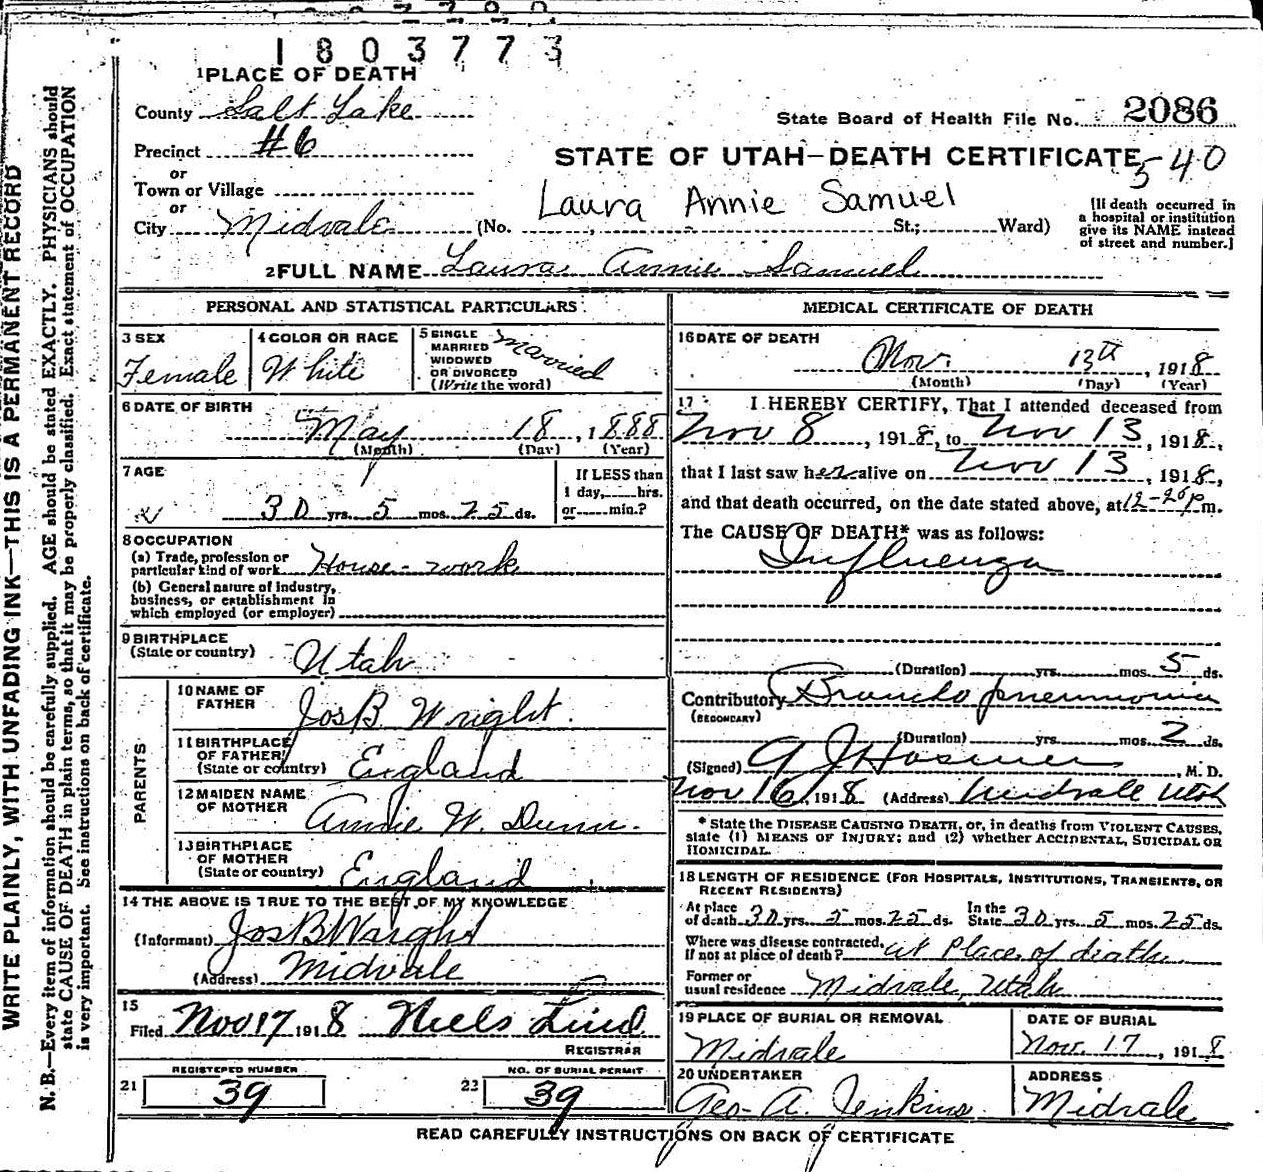 1803773
1 PLACE OF DEATH
County Salt Lake
State Board of Health File No. 2086
Precinct #6
STATE OF UTAH—DEATH CERTIFICATE 540
or
Town or Village
Laura Annie Samuel
or
City Midvale (No. St.; Ward)
[If death occurred in
a hospital or institution
give its NAME instead
of street and number.]
2 FULL NAME Laura Annie Samuel
PERSONAL AND STATISTICAL PARTICULARS
3 SEX
Female
4 COLOR OR RACE
White
5 SINGLE
MARRIED
WIDOWED
OR DIVORCED
(Write the word)
Married
6 DATE OF BIRTH
May 18, 1888
(Month) (Day) (Year)
7 AGE
30 yrs. 5 mos. 25 ds.
If LESS than
1 day, hrs.
or min.?
8 OCCUPATION
(a) Trade, profession or
particular kind of work House-work
(b) General nature of industry,
business, or establishment in
which employed (or employer)
9 BIRTHPLACE
(State or country) Utah
PARENTS
10 NAME OF
FATHER Jos B Wright.
11 BIRTHPLACE
OF FATHER
(State or country) England
12 MAIDEN NAME
OF MOTHER Annie W. Dunn.
13 BIRTHPLACE
OF MOTHER
(State or country) England
14 THE ABOVE IS TRUE TO THE BEST OF MY KNOWLEDGE
(Informant) Jos B Wright
(Address) Midvale
15
Filed Nov 17 1918 Niels Lind
REGISTRAR
21 REGISTERED NUMBER
39
22 NO. OF BURIAL PERMIT
39
MEDICAL CERTIFICATE OF DEATH
16 DATE OF DEATH
Nov. 13th, 1918
(Month) (Day) (Year)
17 I HEREBY CERTIFY, That I attended deceased from
Nov 8, 1918, to Nov 13, 1918,
that I last saw her alive on Nov 13, 1918,
and that death occurred, on the date stated above, at 12-20 p m.
The CAUSE OF DEATH* was as follows:
Influenza
(Duration) yrs. mos. 5 ds.
Contributory Broncho pneumonia
(SECONDARY)
(Duration) yrs. mos. 2 ds.
(Signed) G J Hosmer, M. D.
Nov 16, 1918 (Address) Midvale Utah
* State the DISEASE CAUSING DEATH, or, in deaths from VIOLENT CAUSES,
state (1) MEANS OF INJURY; and (2) whether ACCIDENTAL, SUICIDAL OR
HOMICIDAL.
18 LENGTH OF RESIDENCE (FOR HOSPITALS, INSTITUTIONS, TRANSIENTS, OR
RECENT RESIDENTS)
At place
of death 30 yrs. 5 mos. 25 ds.
In the
State 30 yrs. 5 mos. 25 ds.
Where was disease contracted,
If not at place of death? at Place of death
Former or
usual residence Midvale, Utah
19 PLACE OF BURIAL OR REMOVAL
Midvale
DATE OF BURIAL
Nov. 17, 1918
20 UNDERTAKER
Geo. A. Jenkins
ADDRESS
Midvale
READ CAREFULLY INSTRUCTIONS ON BACK OF CERTIFICATE
WRITE PLAINLY, WITH UNFADING INK—THIS IS A PERMANENT RECORD
N. B.—Every item of information should be carefully supplied. AGE should be stated EXACTLY. PHYSICIANS should
state CAUSE OF DEATH in plain terms, so that it may be properly classified. Exact statement of OCCUPATION
is very important. See instructions on back of certificate.